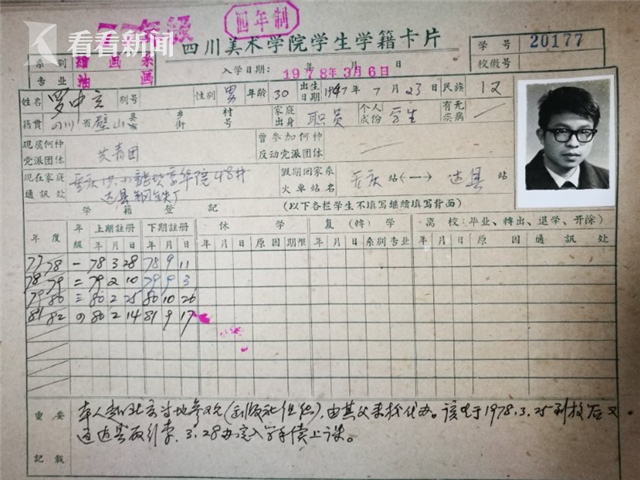 看看新闻
77年级
四年制
四川美术学院学生学籍卡片
系别 绘画系
专业 油画
入学日期：1978年3月6日
学号 20177
校徽号
姓名 罗中立 别号 性别 男 年龄 30 出生日期 1947年7月23日 民族 汉
籍贯 四川省璧山县 乡 村 街 号 家庭出身 职员 个人成份 学生 有无疾病
现属何种党派团体 共青团 曾参加何种反动党派团体
现在家庭通讯处 重庆 48# 达县钢铁厂 假期回家乘火车站名 重庆站(←→)达县站
学籍登记 (以下各栏学生不填写继续填写背面)
年度 年级 上期註册 下期註册 休学 复(转)学 离校:毕业、转出、退学、开除
年月日 年月日 年月日 原因 期限 年月日 系别 专业 年月日 原因 通讯处
77/78 一 78 3 28 78 9 11
78/79 二 79 2 10 79 9 3
79/80 三 80 2 25 80 10 26
81/82 四 80 2 14 81 9 17
重要记载
本人 北京 地参观(出版社组织),由其父来校代办。该生于1978.3.25到校后又
返达县 ,3.28办完入学手续上课。